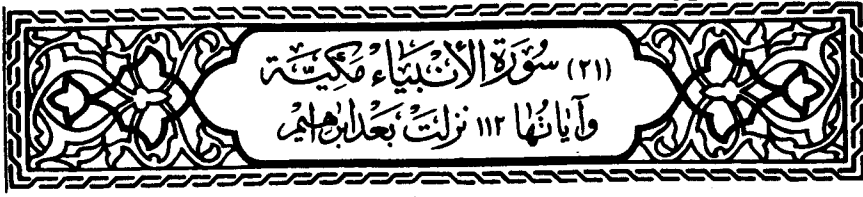 (٢١) سُورَةُ الأَنْبِيَاءِ مَكِّيَّة
وَآيَانُهَا ١١٢ نَزَلَتْ بَعْدَ ابْرٰهِيم